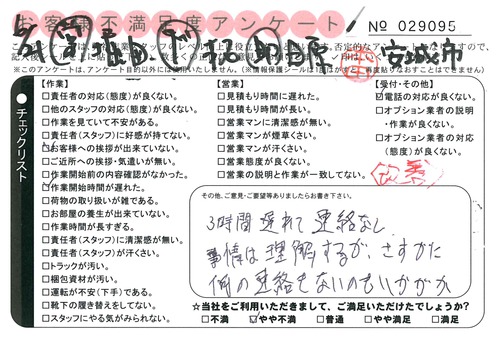 お客様不満足度アンケート
No 029095
安城市
チェックリスト
【作業】
□責任者の対応(態度)が良くない。
□他のスタッフの対応(態度)が良くない。
□作業を見ていて不安がある。
□責任者(スタッフ)に好感が持てない。
□お客様への挨拶が出来ていない。
□ご近所への挨拶・気遣いが無い。
□作業開始前の内容確認がなかった。
☑作業開始時間が遅れた。
□荷物の取り扱いが雑である。
□お部屋の養生が出来ていない。
□作業時間が長すぎる。
□責任者(スタッフ)に清潔感が無い。
□責任者(スタッフ)が汗くさい。
□トラックが汚い。
□梱包資材が汚い。
□運転が不安(下手)である。
□靴下の履き替えをしてない。
□スタッフにやる気がみられない。
【営業】
□見積もり時間に遅れた。
□見積もり時間が長い。
□営業マンに清潔感が無い。
□営業マンが煙草くさい。
□営業マンが汗くさい。
□営業態度が良くない。
□営業の説明と作業が一致してない。
【受付・その他】
□電話の対応が良くない。
□オプション業者の説明
・作業が良くない。
□オプション業者の対応
(態度)が良くない。
改善
その他、ご意見・ご要望等ありましたらお書き下さい。
3時間遅れて連絡なし
事情は理解するが、さすがに
何の連絡もないのもいかがか
☆当社をご利用いただきまして、ご満足いただけたでしょうか?
□不満 ☑やや不満 □普通 □やや満足 □満足